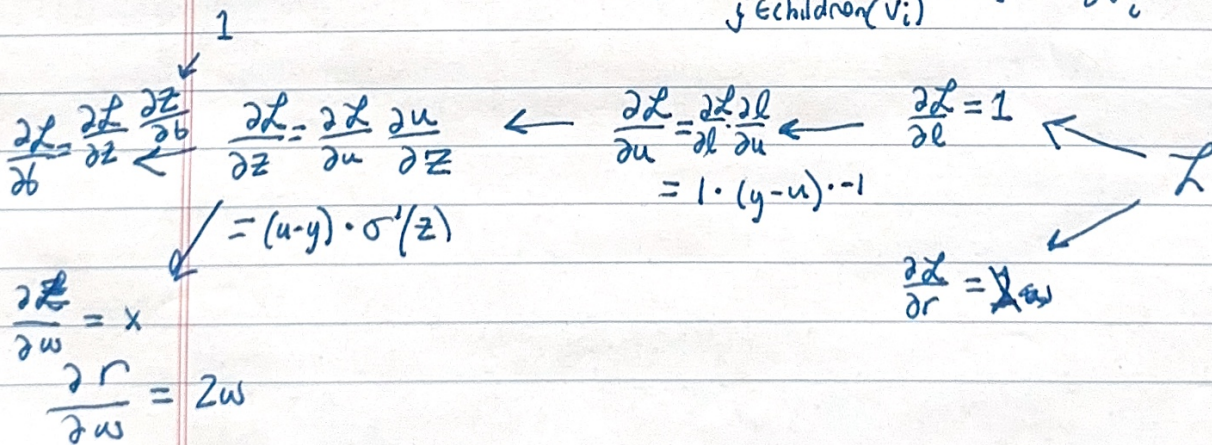 j ∈ children(vᵢ)
1
∂ℒ/∂b = ∂ℒ/∂z ∂z/∂b ← ∂ℒ/∂z = ∂ℒ/∂u ∂u/∂z ← ∂ℒ/∂u = ∂ℒ/∂l · ∂l/∂u ← ∂ℒ/∂l = 1
ℒ
= 1 · (y-u) · -1
= (u-y) · σ'(z)
∂ℒ/∂r =
∂z/∂w = x
∂r/∂w = 2w